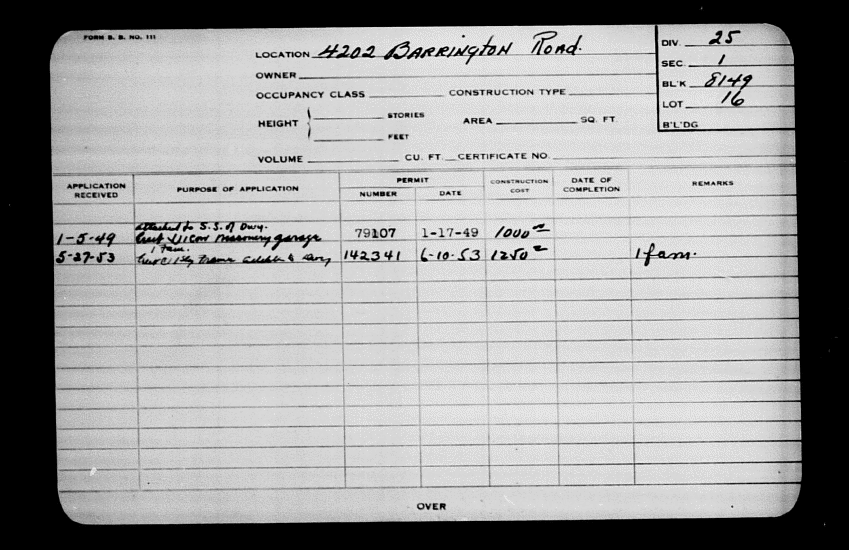 FORM B. B. NO. 111
LOCATION 4202 BARRINGTON ROAD.
OWNER
OCCUPANCY CLASS CONSTRUCTION TYPE
HEIGHT STORIES FEET AREA SQ. FT.
VOLUME CU. FT. CERTIFICATE NO.
DIV. 25
SEC. 1
BL'K 8149
LOT 16
B'L'DG
APPLICATION RECEIVED PURPOSE OF APPLICATION PERMIT NUMBER DATE CONSTRUCTION COST DATE OF COMPLETION REMARKS
attached to S.S. of Dwy.
1-5-49 Erect 1 car masonry garage 79107 1-17-49 1000
1 fam.
5-27-53 1 sty frame to dwy 142341 6-10-53 1250 1 fam.
OVER